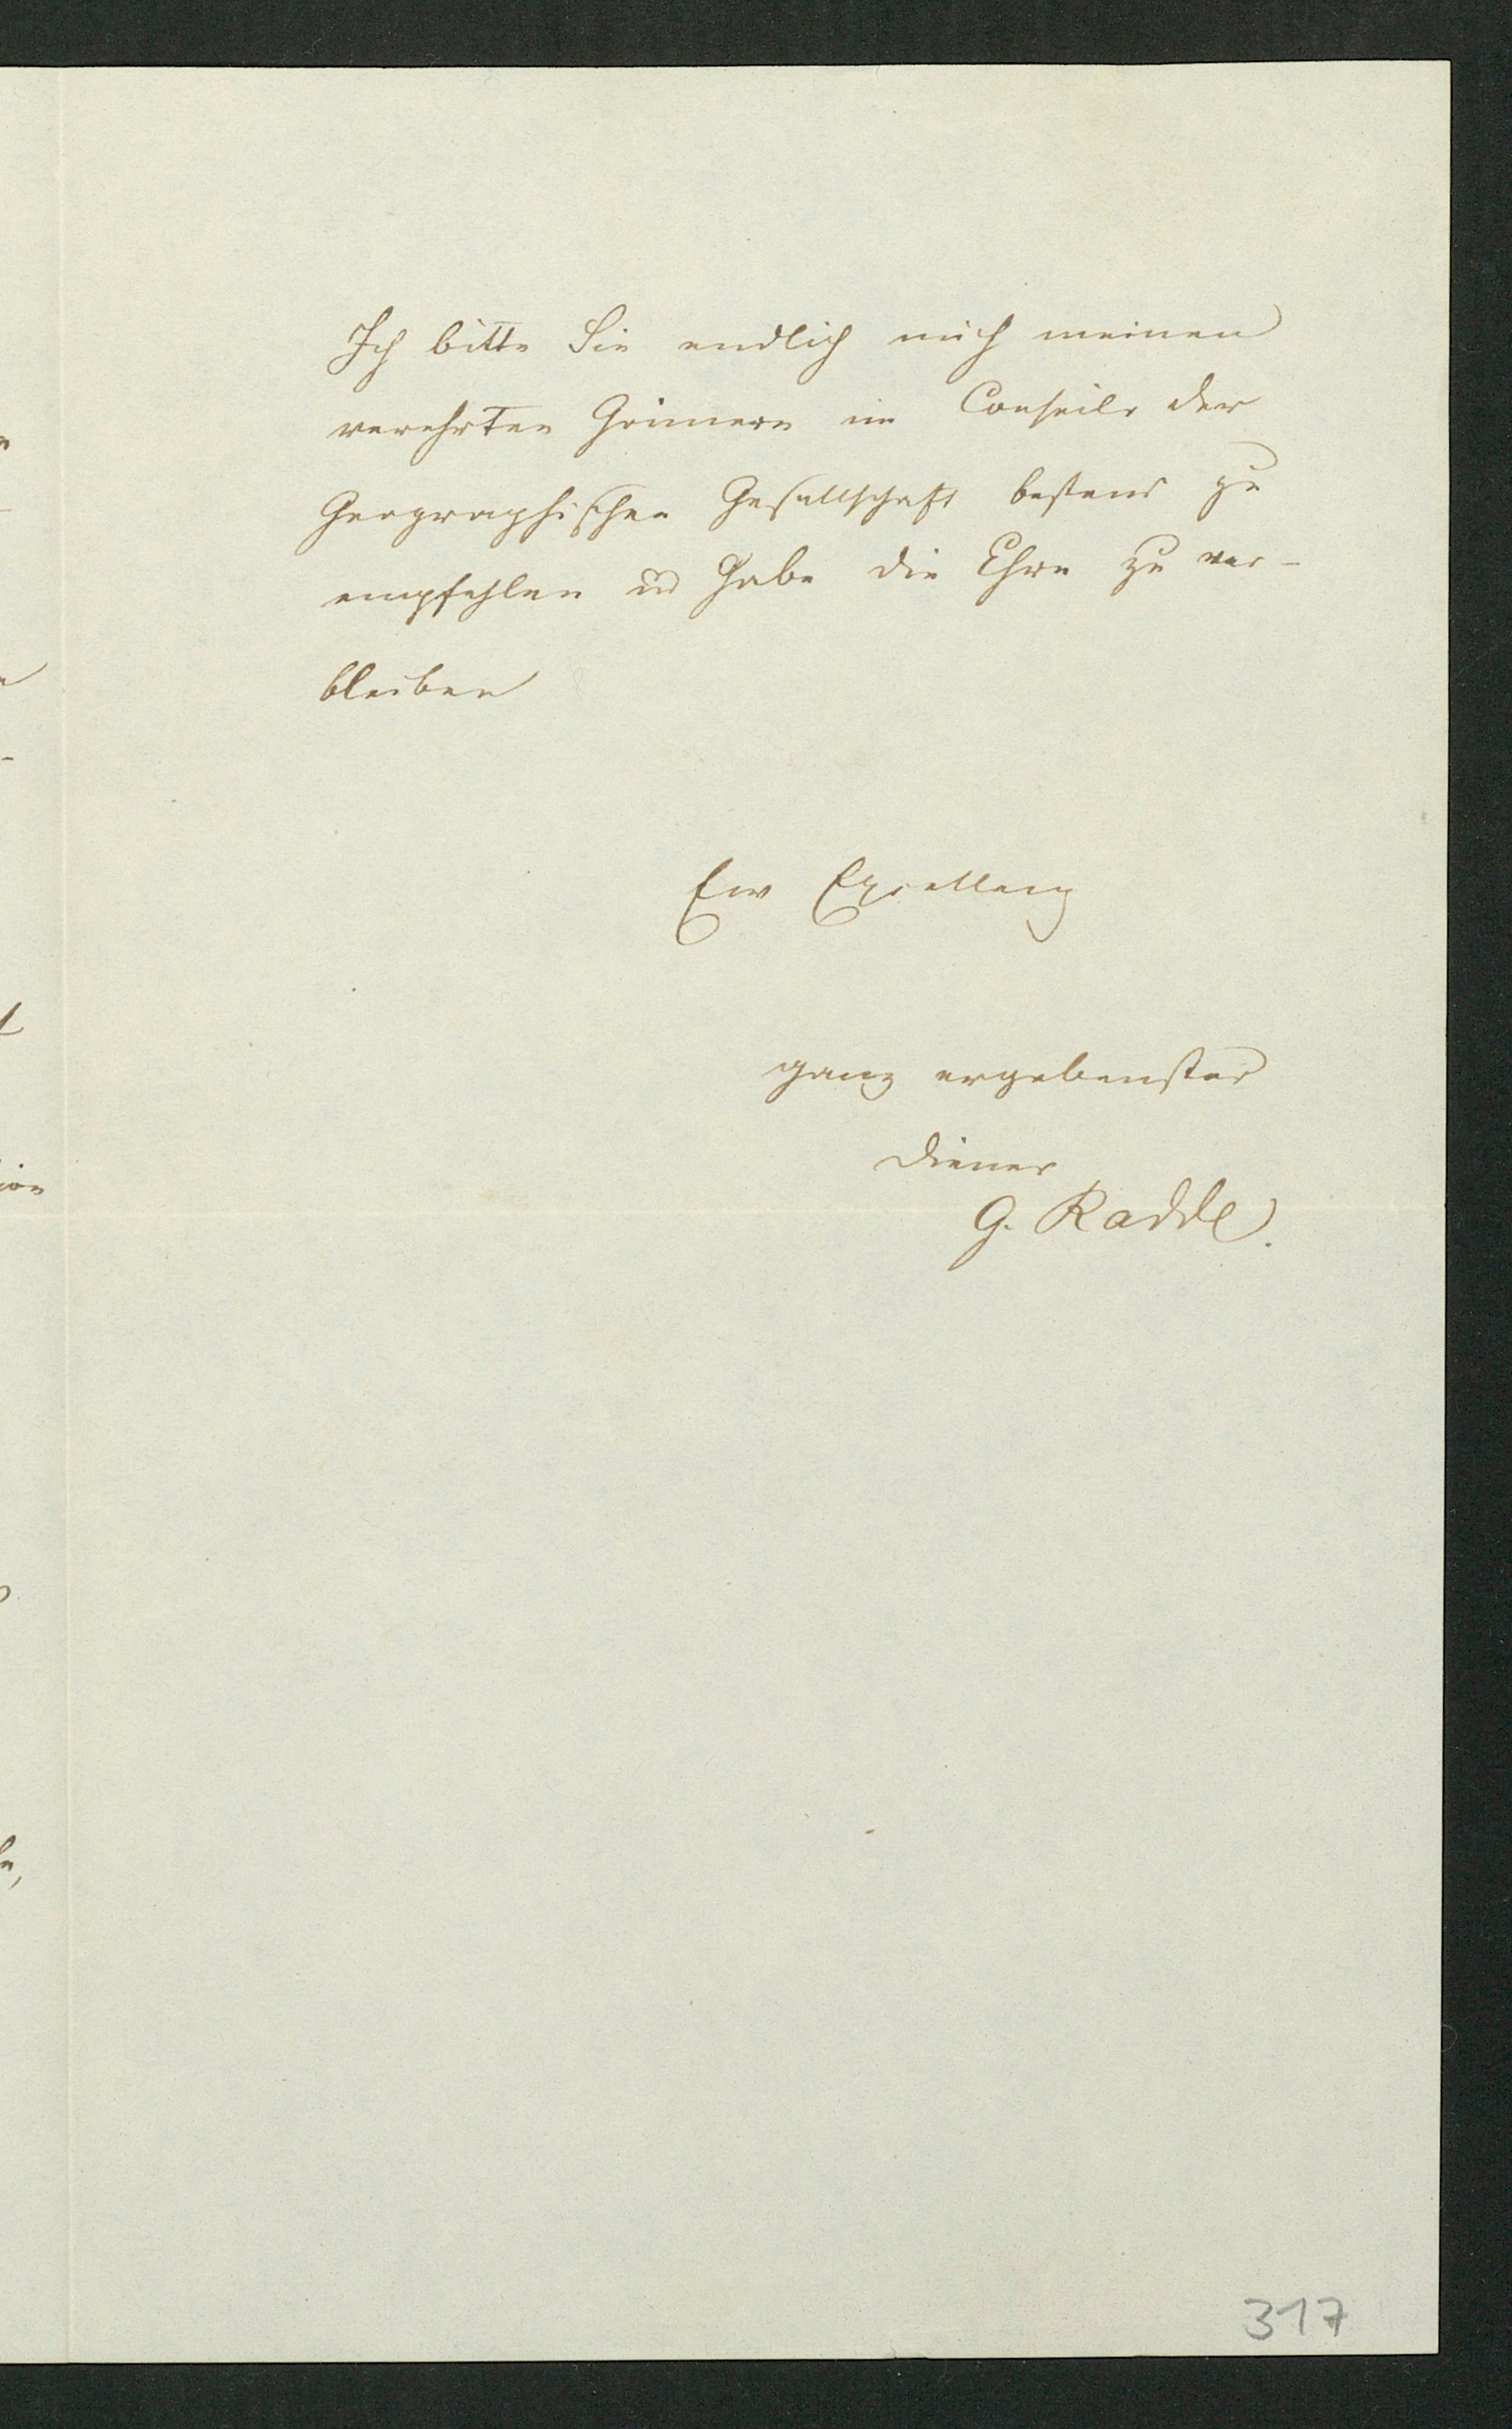 Ich bitte Sie endlich mich meinen
verehrten Gönnern im Conseils der
Geographischen Gesellschaft bestens zu
empfehlen u habe die Ehre zu ver-
bleiben
Ew Excellenz
ganz ergebenster
Diener
G. Radde.
317